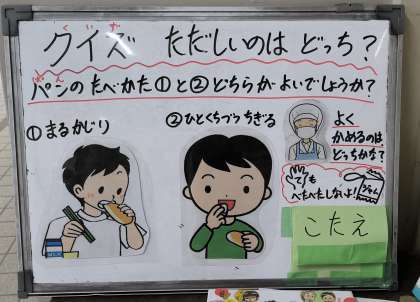 クイズ ただしいのは どっち？
パンの たべかた①と②どちらが よいでしょうか？
①まるかじり
②ひとくちづつ ちぎる
よく
かめるのは
どっちかな？
手も
べたべたしないよ！
こたえ